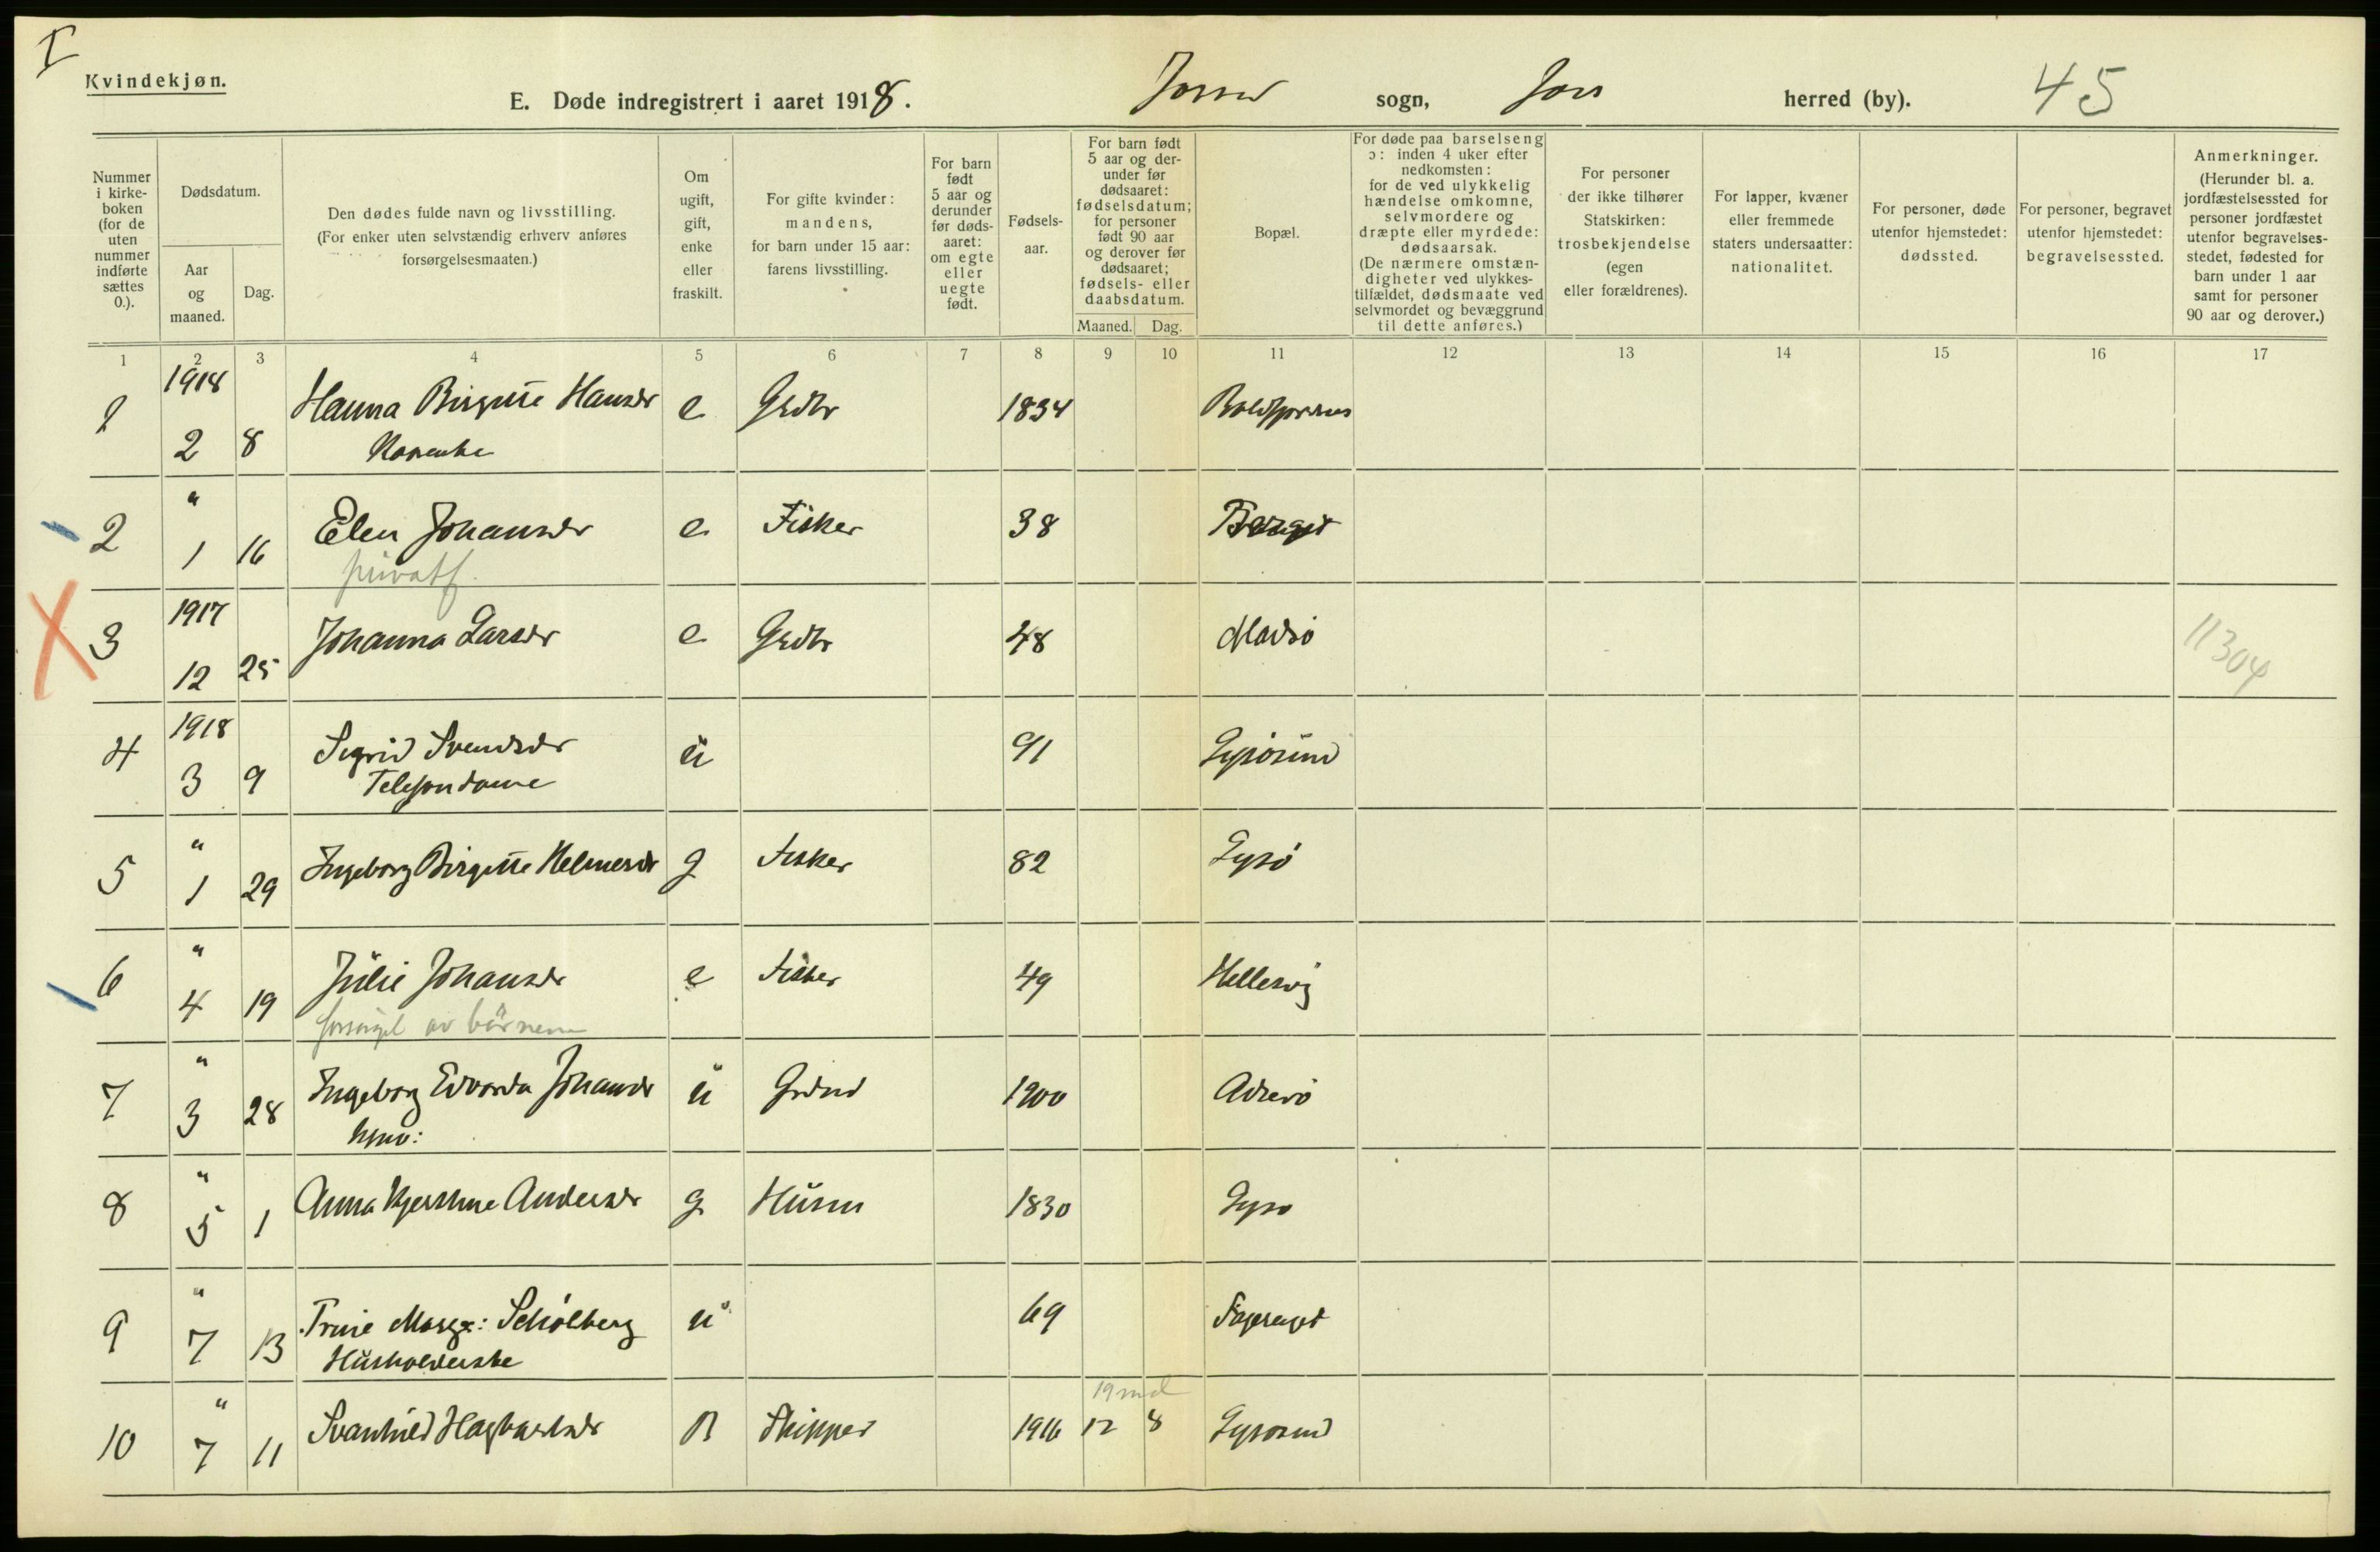 I
Kvindekjøn.
E. Døde indregistrert i aaret 1918. sogn, herred (by). 45
Nummer i kirke-boken (for de uten nummer indførte sættes 0.).
Dødsdatum.
Aar og maaned.
Dag.
Den dødes fulde navn og livsstilling.
(For enker uten selvstændig erhverv anføres forsørgelsesmaaten.)
Om ugift, gift, enke eller fraskilt.
For gifte kvinder: mandens, for barn under 15 aar: farens livsstilling.
For barn født 5 aar og derunder før døds-aaret: om egte eller uegte født.
Fødsels-aar.
For barn født 5 aar og der-under før dødsaaret: fødselsdatum; for personer født 90 aar og derover før dødsaaret; fødsels- eller daabsdatum.
Maaned. Dag.
Bopæl.
For døde paa barselseng ɔ: inden 4 uker efter nedkomsten: for de ved ulykkelig hændelse omkomne, selvmordere og dræpte eller myrdede: dødsaarsak. (De nærmere omstæn-digheter ved ulykkes-tilfældet, dødsmaate ved selvmordet og bevæggrund til dette anføres.)
For personer der ikke tilhører Statskirken: trosbekjendelse (egen eller forældrenes).
For lapper, kvæner eller fremmede staters undersaatter: nationalitet.
For personer, døde utenfor hjemstedet: dødssted.
For personer, begravet utenfor hjemstedet: begravelsessted.
Anmerkninger. (Herunder bl. a. jordfæstelsessted for personer jordfæstet utenfor begravelses-stedet, fødested for barn under 1 aar samt for personer 90 aar og derover.)
1 2 3 4 5 6 7 8 9 10 11 12 13 14 15 16 17
1 1918 2 8 Hanna Birgitte Hansen e Grdbr 1834
2 " 1 16 Elen Johansen e Fisker 38 Berget
privat
3 1917 12 25 Johanna Larsen e Grdbr 48 Madsø 11304
4 1918 3 9 Sigrid Svendsen u 91 Gjæsund
Telefondame
5 " 1 29 Ingeborg Birgitte Helmersen g Fisker 82
6 " 4 19 Julie Johansen e Fisker 49 Hellesvig
forsørget av børnene
7 " 3 28 Ingeborg Edvarda Johansen u 1900
8 " 5 1 Anna Kjerstine Andersen g Husm 1830
9 " 7 13 Trine Margr: Schølberg u 69
Husholderske
19 md
10 " 7 11 Svanhild Hagbartsen B Skipper 1916 12 8